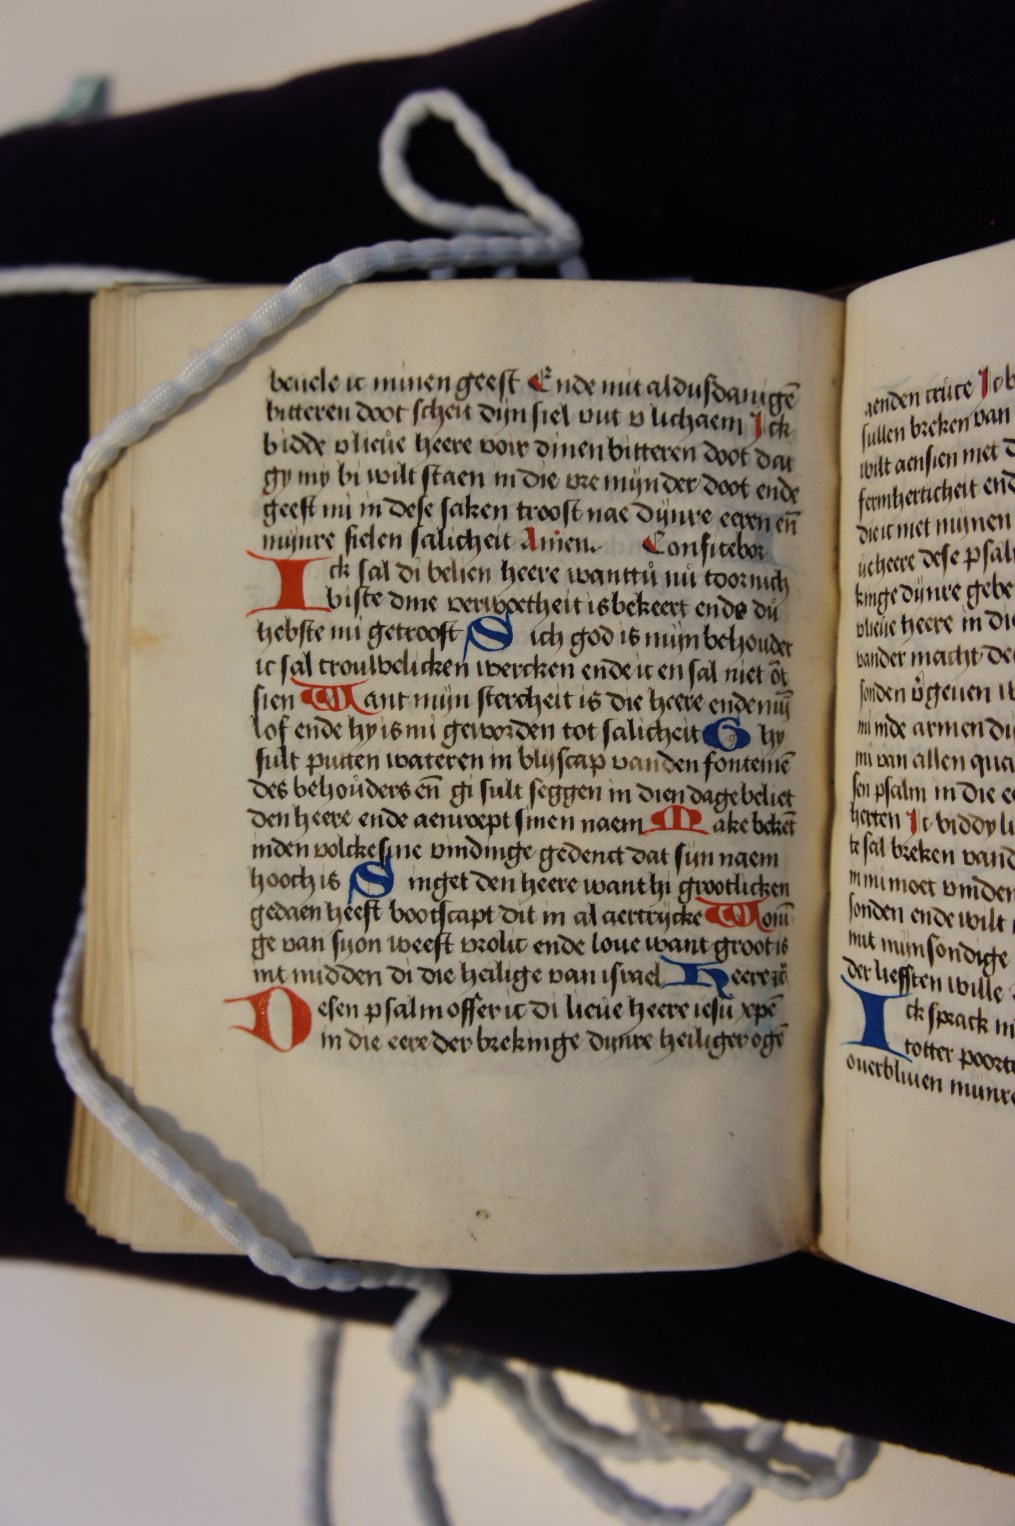 beuele ic minen geest Ende mit aldusdanigē
bitteren doot scheit dijn siel vut v lichaem Ick
bidde vlieůe heere voir dinen bitteren doot dat
gy my bi wilt staen in die vre mijnder doot ende
geeft mi in dese saken troost nae dijnre eeren eñ
mijnre sielen salicheit Amen. Confitebor
Ick sal di belien heere wanttů mi toornich
biste dine verwoetheit is bekeert ende dů
hebste mi getroost Sich god is mijn behouder
ic sal trouwelicken wercken ende ic en sal niet
sien Want mijn stercheit is die heere ende
lof ende hy is mi geworden tot salicheit Ghy
sult putten wateren in blijscap vanden fonteinē
des behoůders eñ gi sult seggen in dien dage beliet
den heere ende aenroept sinen naem Make bekēt
inden volcke sine vindinge gedenct dat sijn naem
hooch is Singet den heere want hi grootlicken
gedaen heeft bootscapt dit in al aertrijcke Woni
ge van syon weest vrolic ende loue want groot is
int midden di die heilige van israel Heere
Desen psalm offer ic di lieue heere iesu xpē
in die eere der brekinge dijnre heiliger ogē
aenden cruce
sullen breken van
wilt aensien met
fermherticheit
die ic met mijnen
heere dese psal
kinge dijnre gebe
vlieue heere in di
vander macht de
sonden geuen
mi inde armen di
mi van allen qua
sen psalm in die
herten Ic biddy li
sal breken
mi moet vinden
sonden ende wilt
mit mijn sondige
der liefsten wille
Ick sprack in
totter poort
ouerbliuen